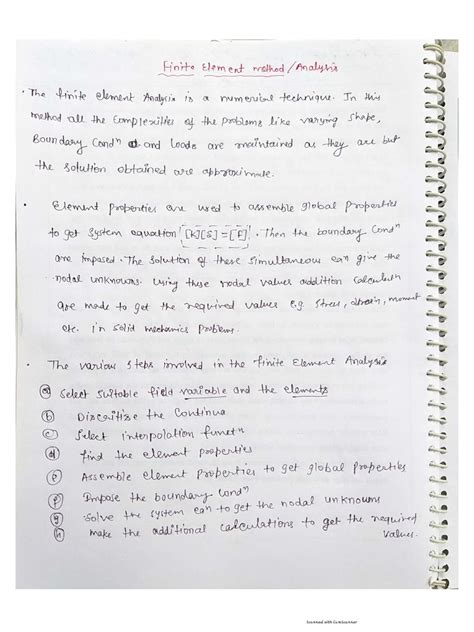 Finite Element method/Analysis
• The finite element Analysis is a numerical technique. In this
method all the complexities of the problems like varying shape,
Boundary Condⁿ and Loads are maintained as they are but
the solution obtained are approximate.
• Element properties are used to assemble global properties
to get system equation [K][δ]=[F]. Then the boundary Condⁿ
are imposed. The solution of these simultaneous eqn give the
nodal unknowns. Using these nodal values addition calculatⁿ
are made to get the required values e.g. stress, strain, moment
etc. in solid mechanics problems.
• The various steps involved in the finite Element Analysis
(a) Select suitable field variable and the elements
(b) Discritise the Continua
(c) Select interpolation functⁿ
(d) find the element properties
(e) Assemble element properties to get global properties
(f) Impose the boundary Condⁿ
(g) Solve the system eqn to get the nodal unknowns
(h) make the additional calculations to get the required
values.
Scanned with CamScanner